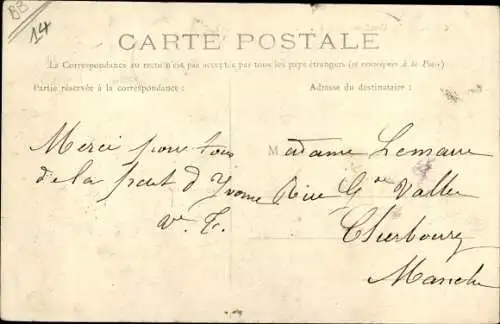 BB
14
CARTE POSTALE
La Correspondance au recto n'est pas acceptée par tous les pays étrangers (se renseigner à la Poste)
Partie réservée à la correspondance :
Adresse du destinataire :
Merci pour tous
de la part d'Yvonne
V. F.
Madame Lemarre
Rue Gde Vallée
Cherbourg
Manche